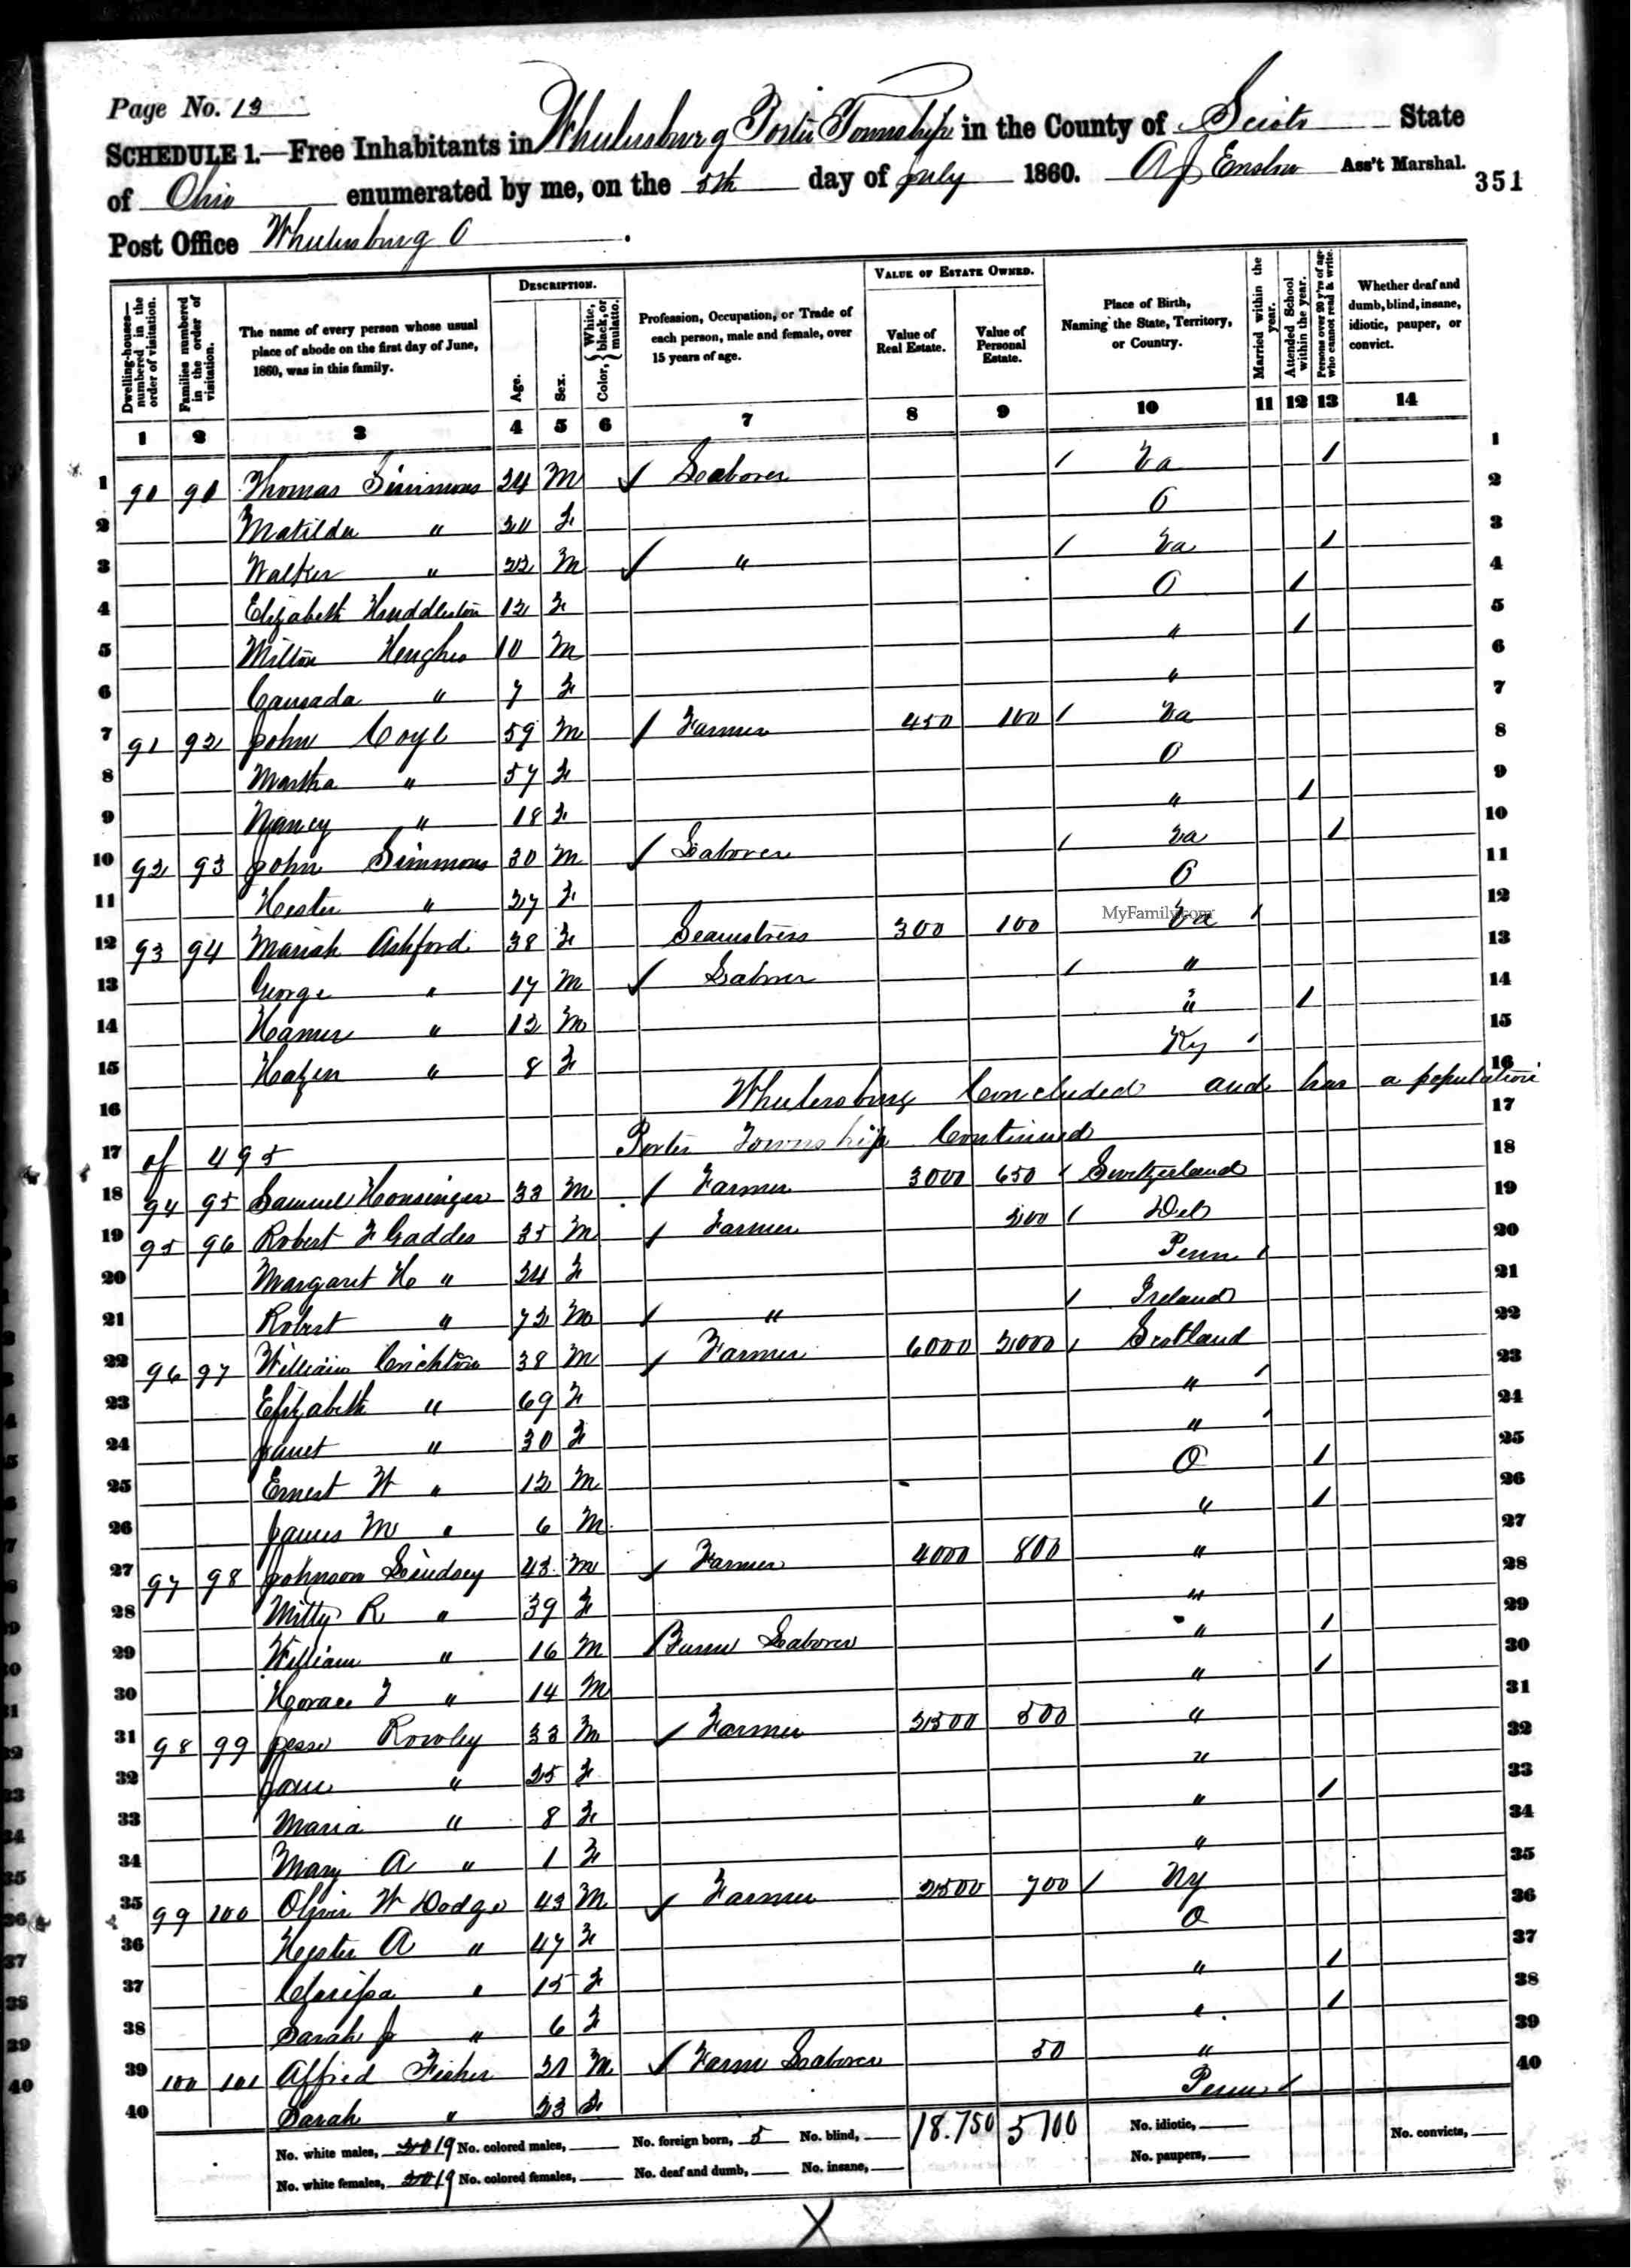 Page No. 13
SCHEDULE 1.—Free Inhabitants in Wheelersburg Porter Township in the County of Scioto State
of Ohio enumerated by me, on the 5th day of July 1860. A J Enslow Ass't Marshal. 351
Post Office Wheelersburg O.
Dwelling-houses—numbered in the order of visitation. Families numbered in the order of visitation. The name of every person whose usual place of abode on the first day of June, 1860, was in this family. DESCRIPTION. Age. Sex. Color, { White, black, or mulatto. Profession, Occupation, or Trade of each person, male and female, over 15 years of age. VALUE OF ESTATE OWNED. Value of Real Estate. Value of Personal Estate. Place of Birth, Naming the State, Territory, or Country. Married within the year. Attended School within the year. Persons over 20 y'rs of age who cannot read & write. Whether deaf and dumb, blind, insane, idiotic, pauper, or convict.
1 2 3 4 5 6 7 8 9 10 11 12 13 14
1 90 91 Thomas Simmons 24 M Laborer / Va / 1
2 Matilda " 20 F O 2
3 Walker " 22 M " / Va / 3
4 Elizabeth Huddleston 12 F O / 4
5 Milton Hughes 10 M " / 5
6 Canada " 7 F " 6
7 91 92 John Coyle 59 M / Farmer 450 100 / Va 7
8 Martha " 57 F O 8
9 Nancy " 18 F " / 9
10 92 93 John Simmons 30 M / Laborer / Va / 10
11 Hester " 27 F O 11
MyFamily.com
12 93 94 Mariah Ashford 38 F Seamstress 300 100 Va / 12
13 George " 17 M Laborer / " 13
14 " 12 M " / 14
15 " 8 F Ky / 15
16 Wheelersburg Concluded and has a population 16
17 of 495 Porter Township Continued 17
18 94 95 Samuel Honsinger 33 M / Farmer 3000 650 / Switzerland 18
19 95 96 Robert F Gaddes 35 M / Farmer 200 / Del 19
20 Margaret H " 34 F Penn / 20
21 Robert " 72 M / " / Ireland 21
22 96 97 William Crichton 38 M / Farmer 6000 2000 / Scotland 22
23 Elizabeth " 69 F " / 23
24 Janet " 30 F " / 24
25 Ernest W " 12 M O / 25
26 James M " 6 M " / 26
27 97 98 Johnson Lindsey 43 M / Farmer 4000 800 " 27
28 Milly R " 39 F " 28
29 William " 16 M Farm Laborer " / 29
30 Horace " 14 M " / 30
31 98 99 Jesse Rowley 33 M / Farmer 2500 500 " 31
32 Jane " 25 F " 32
33 Maria " 8 F " / 33
34 Mary A " 1 F " 34
35 99 100 Oliver W Dodge 43 M / Farmer 2500 700 / NY 35
36 Hester A " 47 F O 36
37 Clarissa " 15 F " / 37
38 Sarah J " 6 F " / 38
39 100 101 Alfred Fisher 21 M / Farm Laborer 50 " 39
40 Sarah " 23 F Penn / 40
No. white males, 20 19 No. colored males, No. foreign born, 5 No. blind, 18.750 5700 No. idiotic, No. convicts,
No. white females, 20 19 No. colored females, No. deaf and dumb, No. insane, No. paupers,
X